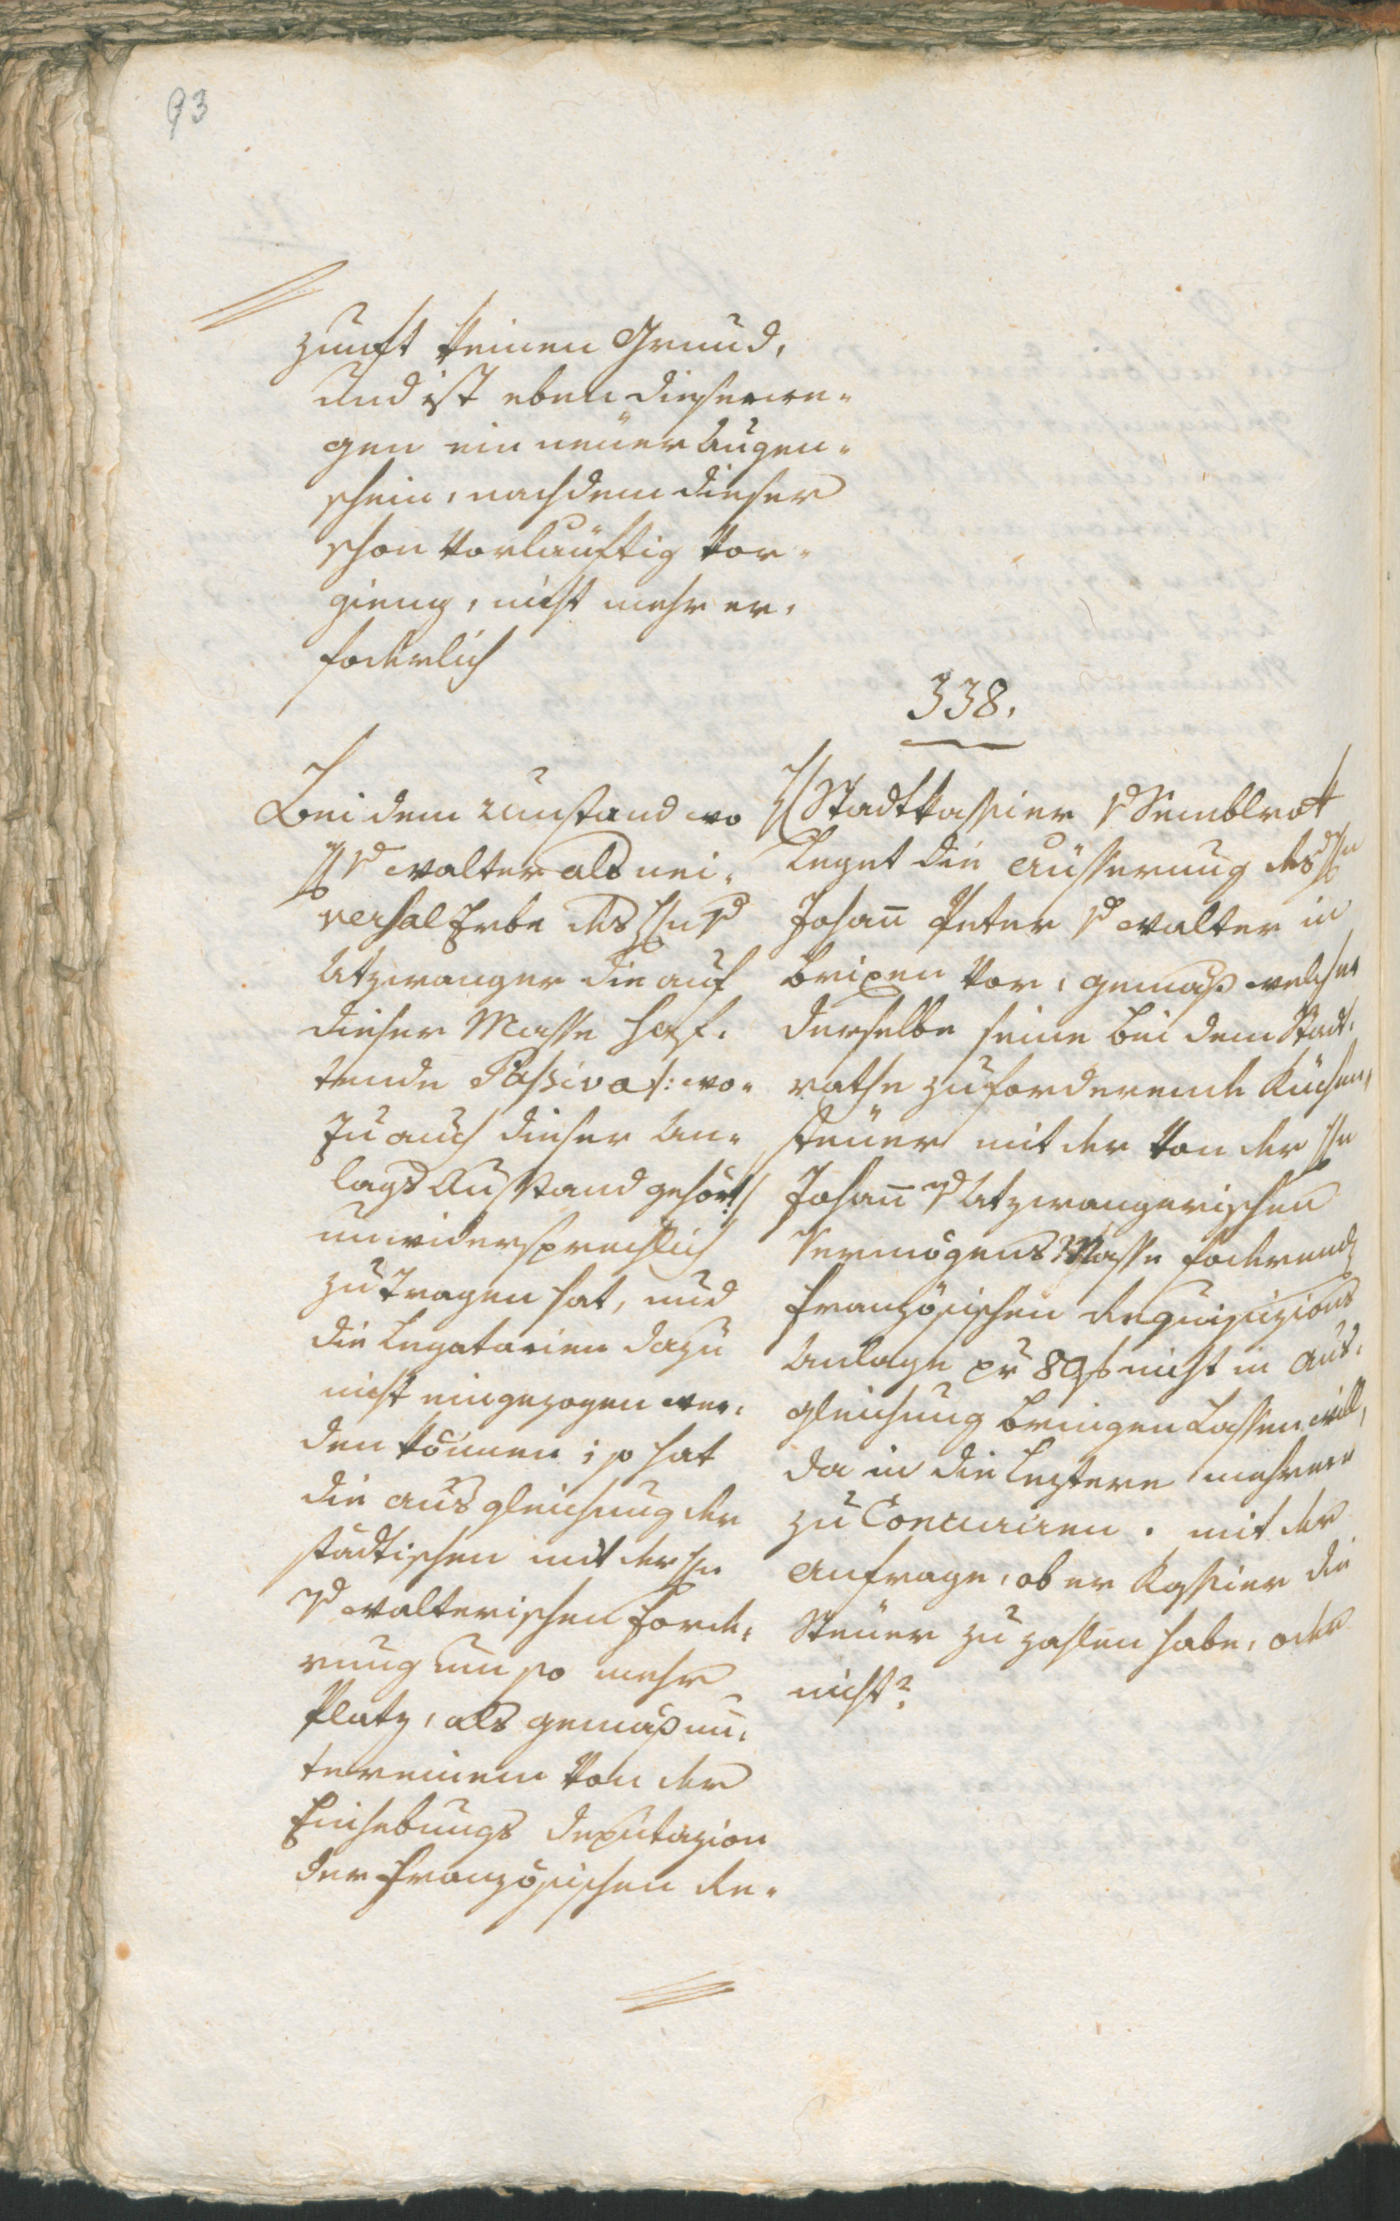 93
zunft keinen Grund,
und ist eben dieserwe-
gen ein neüer Augen-
schein, nachdem dieser
schon vorläuftig vor-
gieng, nicht mehr er-
foderlich
338.
Bei dem Umstand wo
H v Walter als uni-
versal Erbe des Hn v
Utzwanger die auf
dieser Masse haf-
tende Passiva /: wo-
zu auch dieser An-
lags Ausstand gehört :/
unwidersprechlich
zu tragen hat, und
die Legatarien dazu
nicht eingezogen wer-
den können; so hat
die Ausgleichung der
städtischen mit der Hn
v Walterischen Forde-
rung um so mehr
Platz, als gemäß un-
tereinem von der
Einhebungs Deputazion
der französischen Re-
H Stadtkassier v Semblrok
Leget die Aüsserung des Hn
Johan̄ Peter v Walter in
Brixen vor, gemäß welcher
derselbe seine bei dem Stadt-
rathe zuforderende Küchen-
steüer mit der von der Hn
Johan̄ v Utzwangerischen
Vermögens Masse foderend
französischen Requisizions
Anlage pr 89 f nicht in Aus-
gleichung bringen Lassen will,
da in die Leztere mehrere
zu Concuriren. mit der
Anfrage, ob er Kassier die
Steüer zu zahlen habe, oder
nicht?